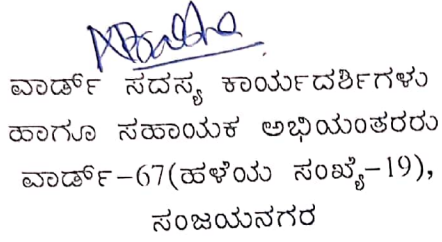 ವಾರ್ಡ್ ಸದಸ್ಯ ಕಾರ್ಯದರ್ಶಿಗಳು
ಹಾಗೂ ಸಹಾಯಕ ಅಭಿಯಂತರರು
ವಾರ್ಡ್-67(ಹಳೆಯ ಸಂಖ್ಯೆ-19),
ಸಂಜಯನಗರ